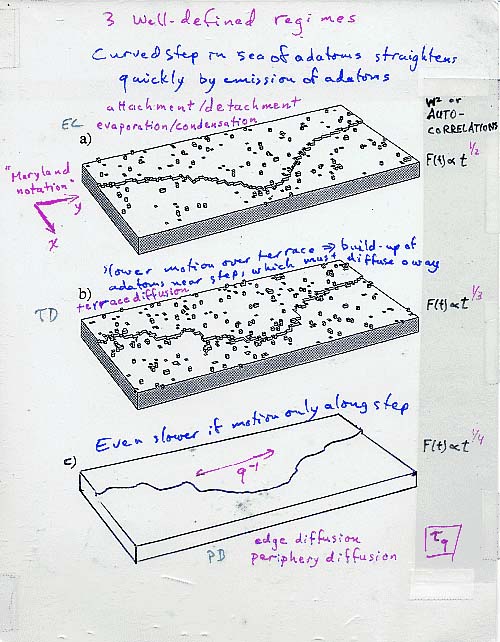 3 Well-defined regimes
Curved step in sea of adatoms straightens
quickly by emission of adatoms
attachment/detachment
EC evaporation/condensation
a)
W² or
AUTO-
CORRELATIONS
F(t) ∝ t^1/2
"Maryland
notation"
y
x
slower motion over terrace ⇒ build-up of
adatoms near step, which must diffuse away
b)
terrace diffusion
TD
F(t) ∝ t^1/3
Even slower if motion only along step
c)
q⁻¹
F(t) ∝ t^1/4
edge diffusion
PD periphery diffusion
τq